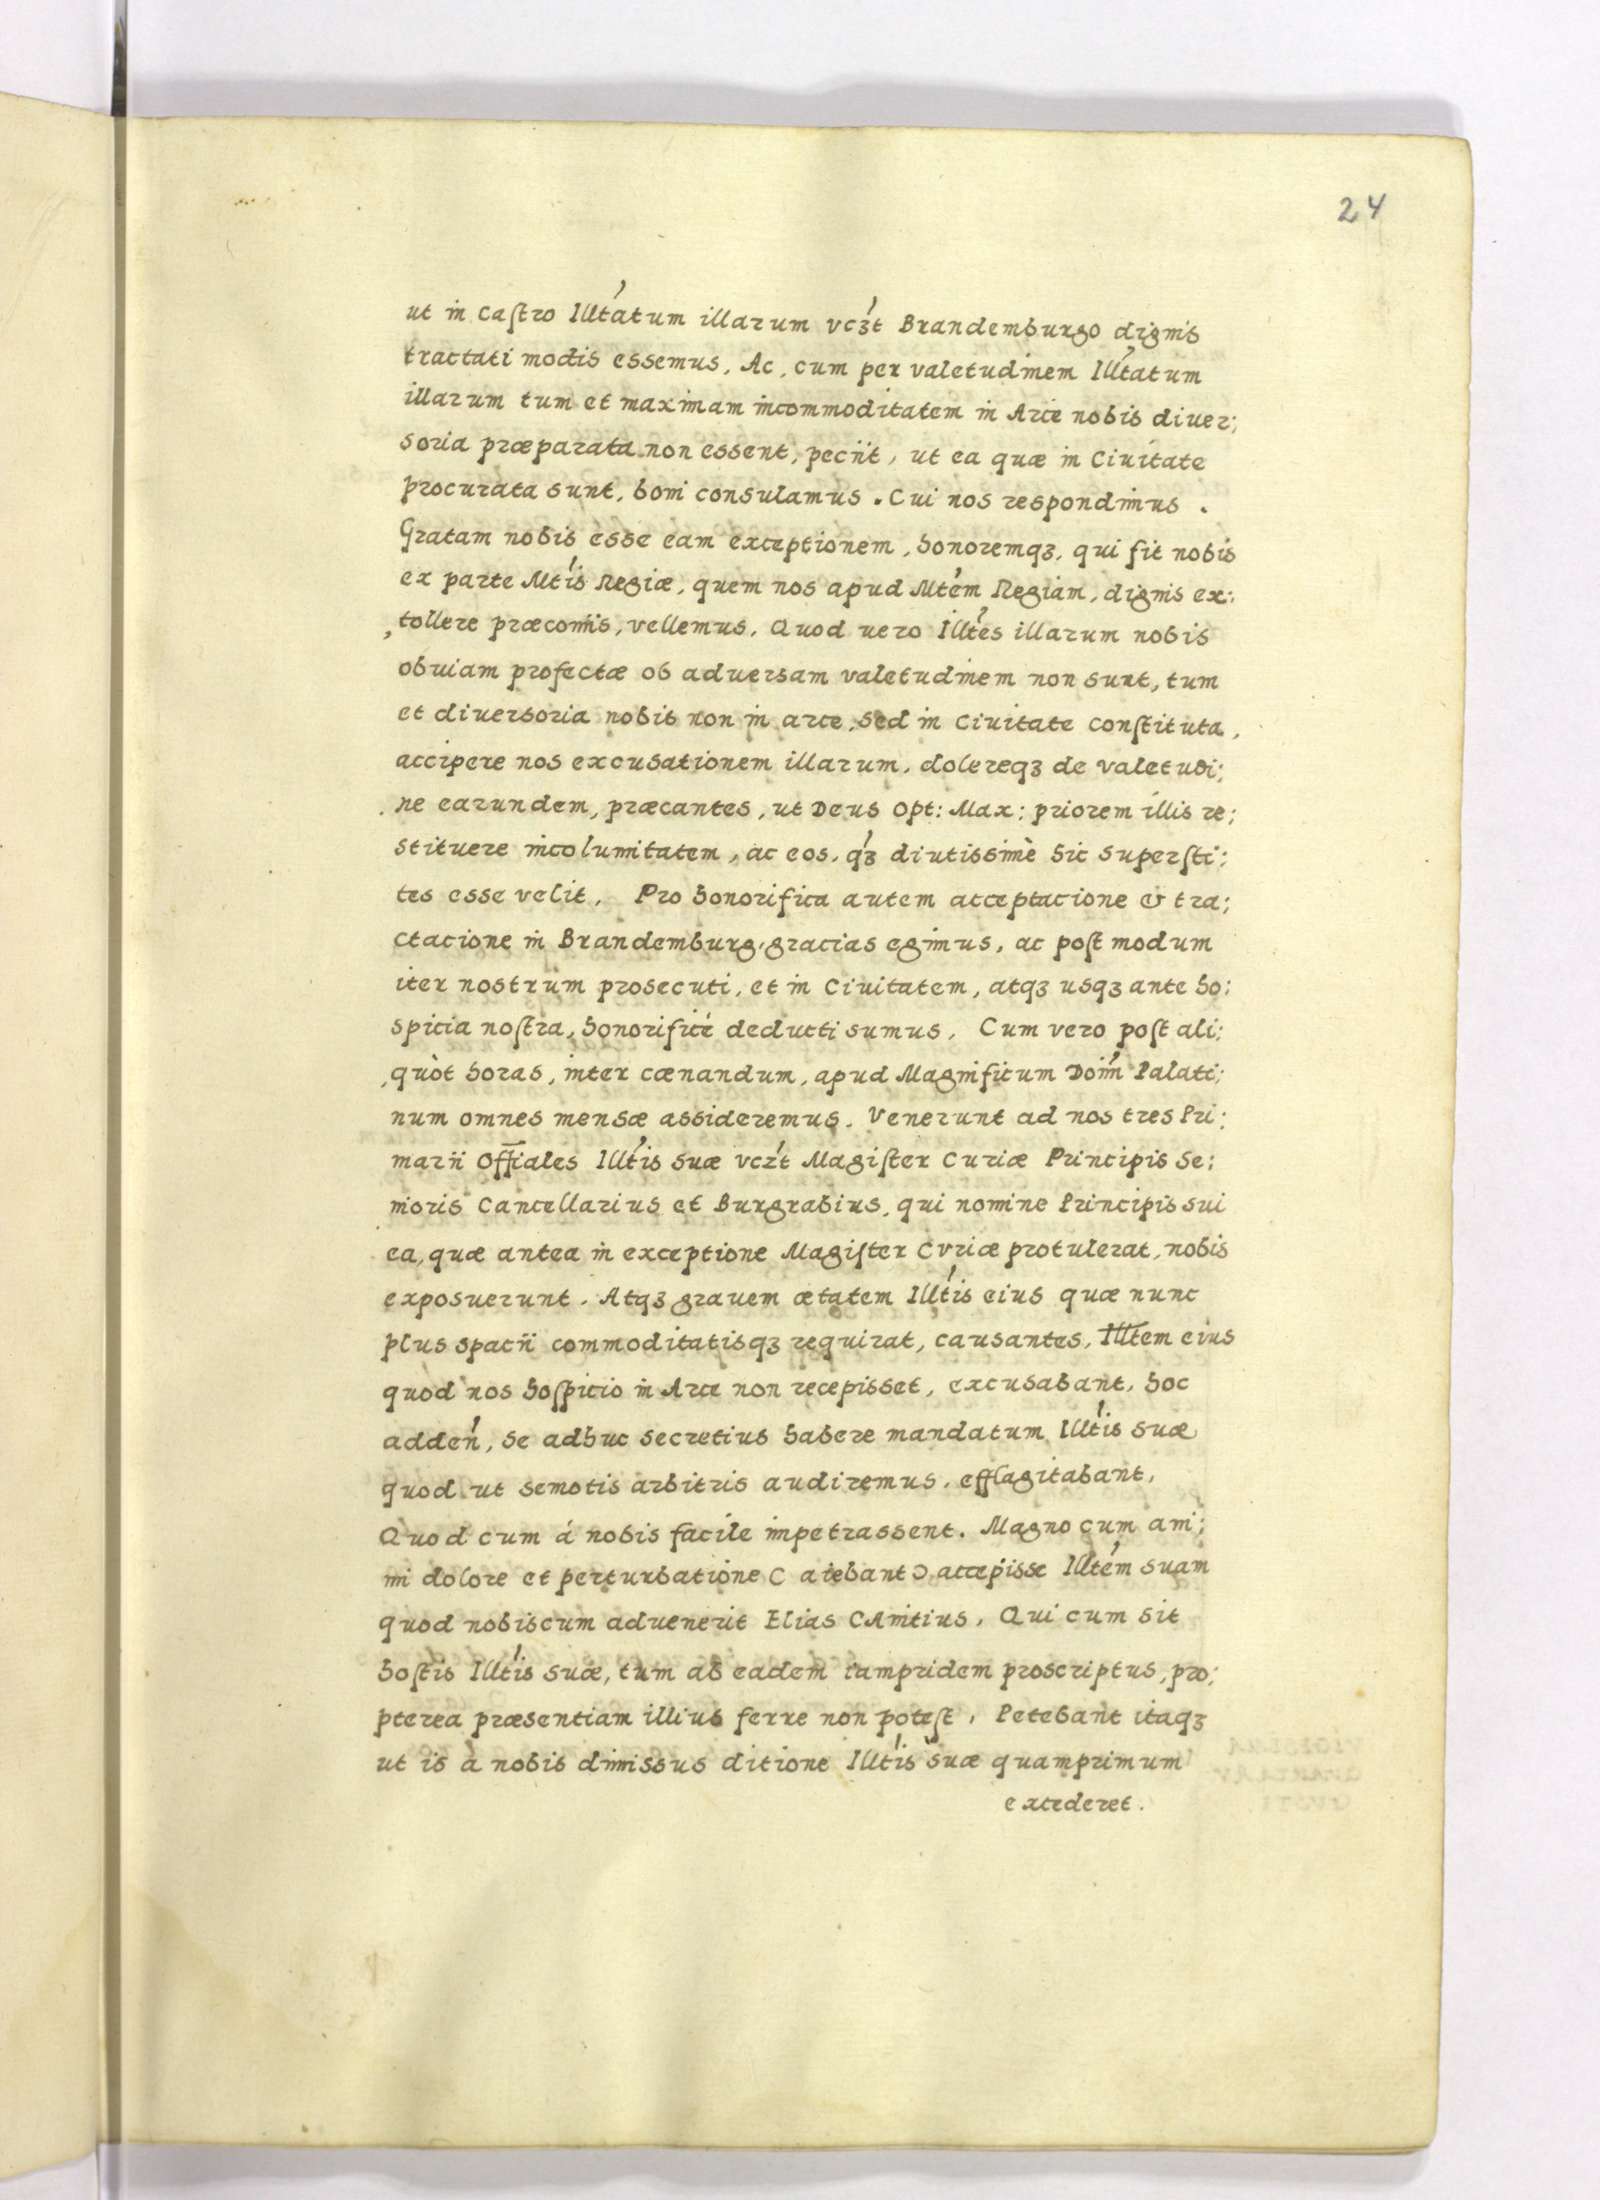 24
ut in castro Illtatum illarum vcʒt Brandemburgo dignis
tractati modis essemus, Ac, cum per valetudinem Illtatum
illarum tum et maximam incommoditatem in Arce nobis diuer;
soria præparata non essent, pecnt, ut ea quæ in Ciuitate
procurata sunt, boni consulamus. Cui nos respondimus.
Gratam nobis esse eam exceptionem, honoremqʒ, qui fit nobis
ex parte Mtis Regiæ, quem nos apud Mtem Regiam, dignis ex:
tollere præconiis, vellemus. Quod uero Illtes illarum nobis
obuiam profectæ ob aduersam valetudinem non sunt, tum
et diuersoria nobis non in arce, sed in Ciuitate constituta,
accipere nos excusationem illarum, dolereqʒ de valetudi;
ne earundem, præcantes, ut Deus Opt: Max: priorem illis re;
stituere incolumitatem, ac eos, qʒ diutissimè sic supersti;
tes esse velit. Pro honorifica autem acceptacione & tra;
ctacione in Brandemburg, gracias egimus, ac post modum
iter nostrum prosecuti, et in Ciuitatem, atqʒ usqʒ ante ho;
spicia nostra, honorificè deducti sumus. Cum vero post ali;
quòt horas, inter cænandum, apud Magnificum Doim Palati;
num omnes mensæ assideremus. Venerunt ad nos tres Pri;
marii Offiales Illtis suæ vczt Magister Curiæ Principis Se;
nioris Cancellarius et Burgrabius, qui nomine Principis sui
ea, quæ antea in exceptione Magister Curiæ protulerat, nobis
exposuerunt. Atqʒ grauem ætatem Illtis eius quæ nunc
plus spacii commoditatisqʒ requirat, causantes, Illtem eius
quod nos hospicio in Arce non recepisset, excusabant, hoc
adden, se adhuc secretius habere mandatum Illtis suæ
quod ut semotis arbitris audiremus, efflagitabant,
Quod cum á nobis facile impetrassent. Magno cum ani;
mi dolore et perturbatione C aiebant Ɔ accepisse Illtem suam
quod nobiscum aduenerit Elias CAnitius. Qui cum sit
hostis Illtis suæ, tum ab eadem iampridem proscriptus, pro;
pterea præsentiam illius ferre non potest, Petebant itaqʒ
ut is à nobis dimissus ditione Illtis suæ quamprimum
excederet.